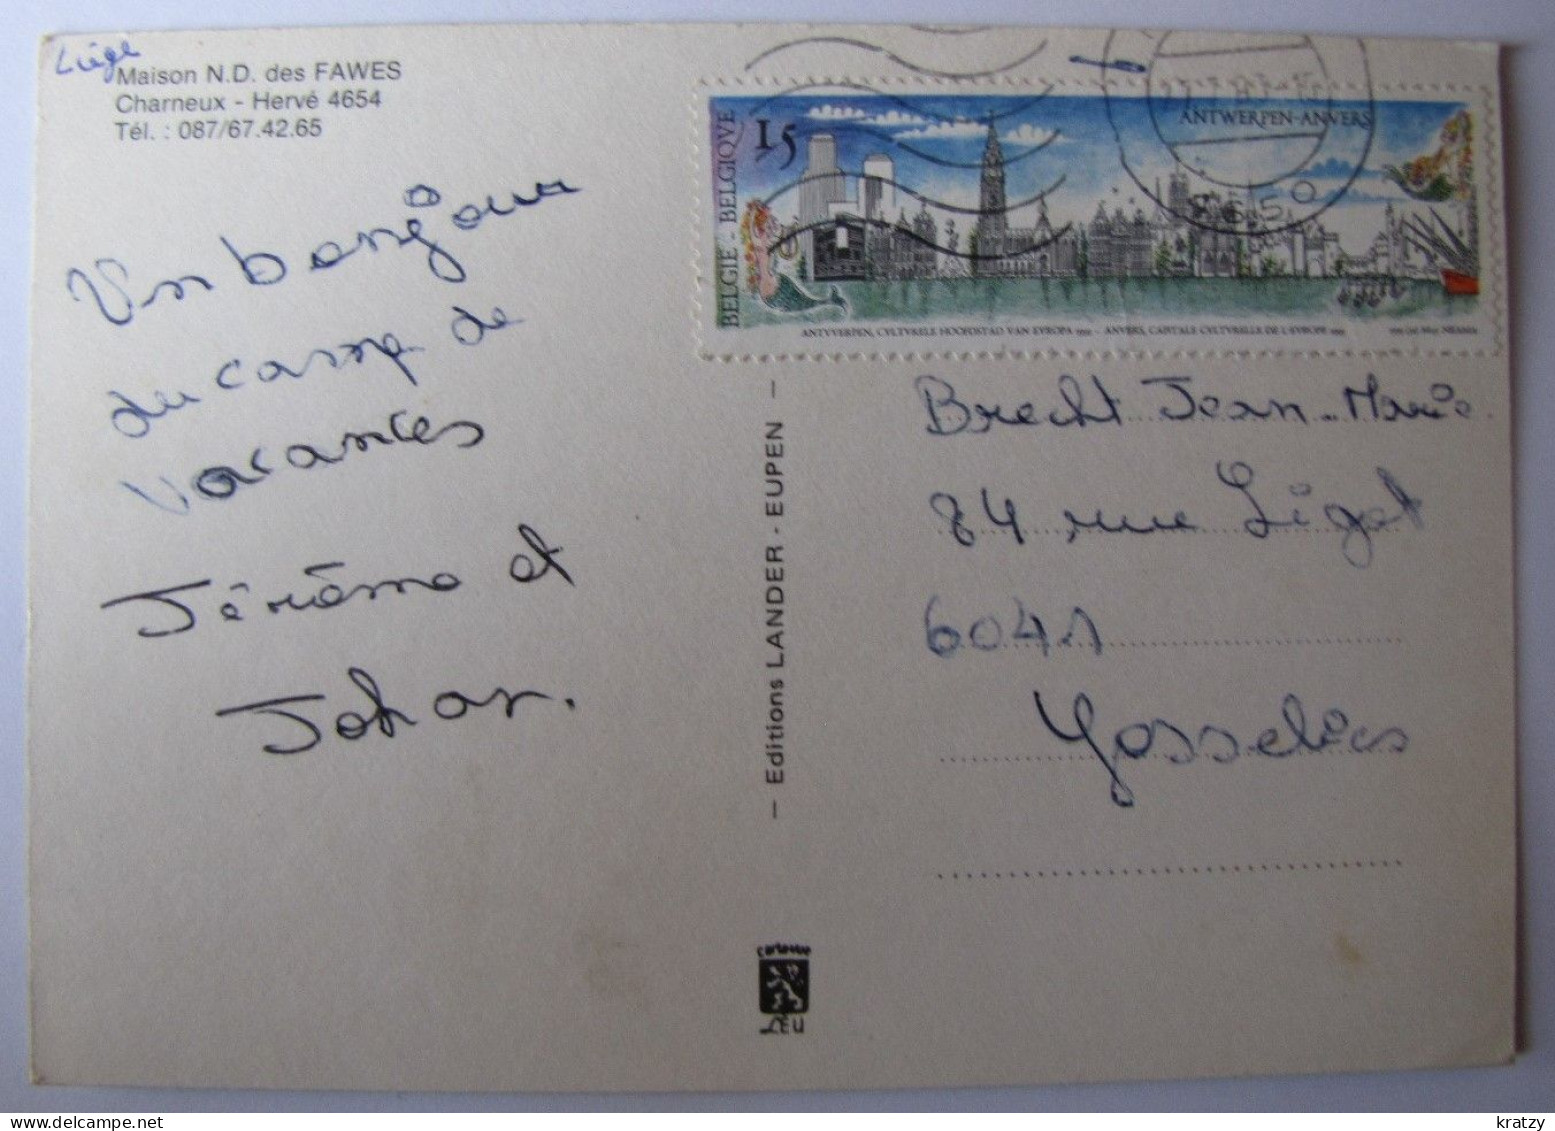 Liége
Maison N.D. des FAWES
Charneux - Hervé 4654
Tél. : 087/67.42.65
Un bonjour
du camp de
vacances
Jérôme et
Johan.
— Editions LANDER - EUPEN —
BELGIE - BELGIQVE
15
ANTWERPEN-ANVERS
ANTVVERPEN, CVLTVRELE HOOFDSTAD VAN EVROPA 1993 - ANVERS, CAPITALE CVLTVRELLE DE L'EVROPE 1993
Brecht Jean-Marie
84, rue Ligot
6041
Gosselies
delcampe.net
kratzy